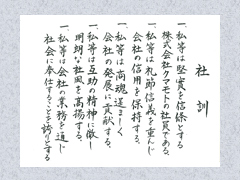 社訓
一、私等は堅実を信條とする
株式会社クマモトの社員である。
一、私等は礼節信義を重んじ
会社の信用を保持する。
一、私等は商魂逞ましく
会社の発展に貢献する。
一、私等は互助の精神に徹し
明朗な社風を高揚する。
一、私等は会社の業務を通じ
社会に奉仕することを誇りとする